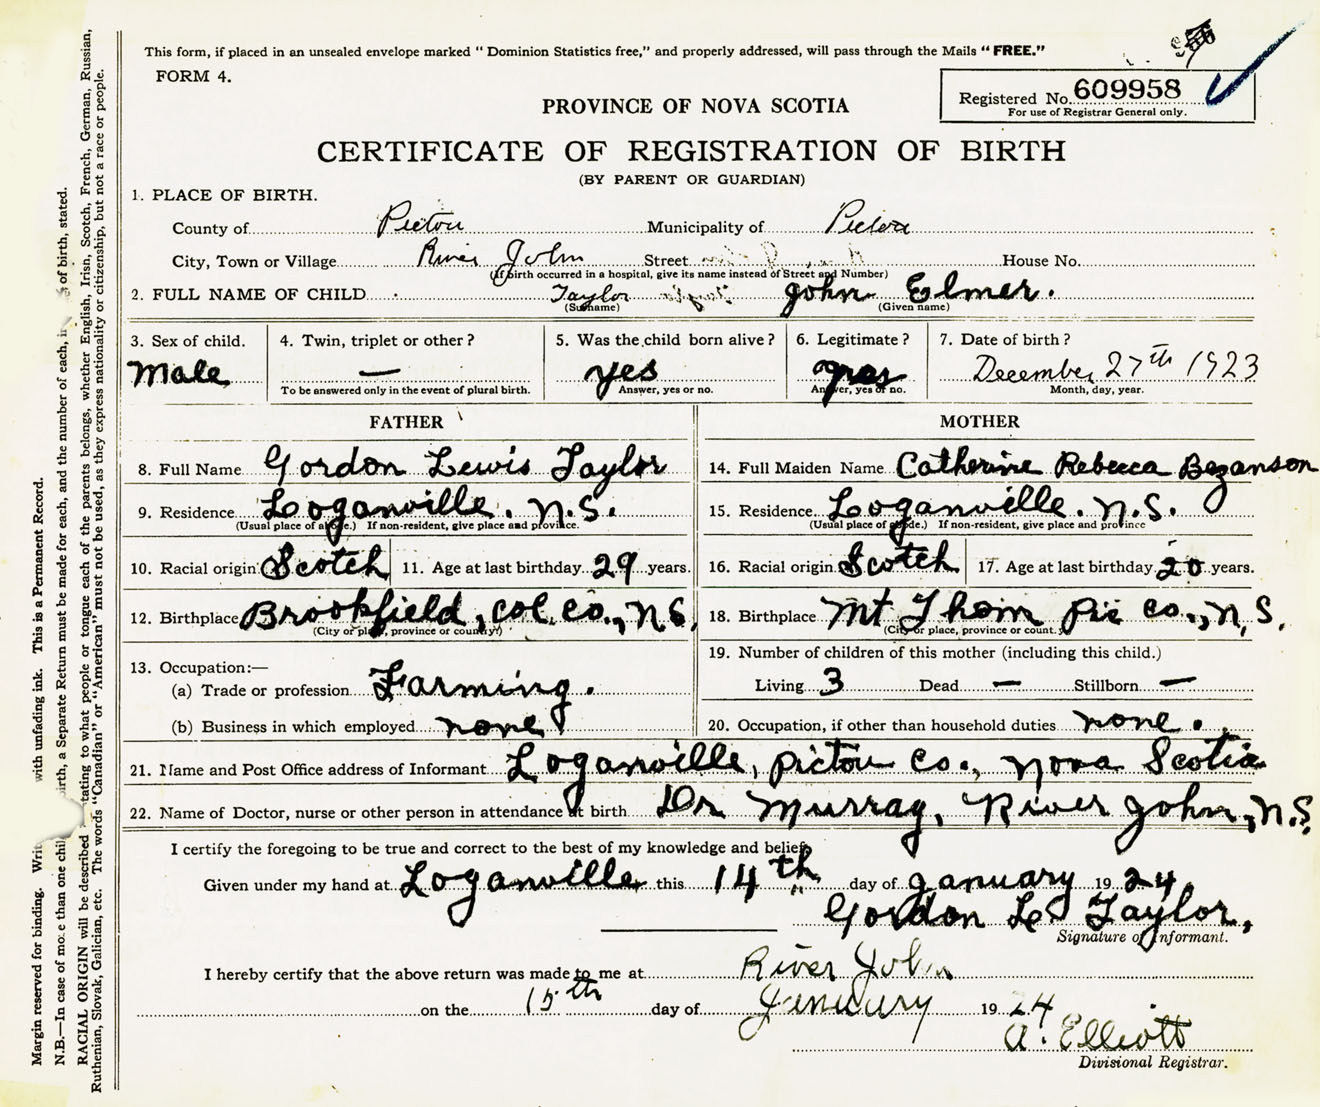 This form, if placed in an unsealed envelope marked "Dominion Statistics free," and properly addressed, will pass through the Mails "FREE."
FORM 4.
Registered No. 609958
For use of Registrar General only.
PROVINCE OF NOVA SCOTIA
CERTIFICATE OF REGISTRATION OF BIRTH
(BY PARENT OR GUARDIAN)
1. PLACE OF BIRTH.
County of Pictou Municipality of Pictou
City, Town or Village River John Street House No.
(If birth occurred in a hospital, give its name instead of Street and Number)
2. FULL NAME OF CHILD Taylor John Elmer.
(Surname) (Given name)
3. Sex of child. 4. Twin, triplet or other? 5. Was the child born alive? 6. Legitimate? 7. Date of birth?
Male — yes yes December 27th 1923
To be answered only in the event of plural birth. Answer, yes or no. Answer, yes or no. Month, day, year.
FATHER MOTHER
8. Full Name Gordon Lewis Taylor 14. Full Maiden Name Catherine Rebecca Bezanson
9. Residence Loganville. N.S. 15. Residence Loganville. N.S.
(Usual place of abode.) If non-resident, give place and province. (Usual place of abode.) If non-resident, give place and province
10. Racial origin Scotch 11. Age at last birthday 29 years. 16. Racial origin Scotch 17. Age at last birthday 20 years.
12. Birthplace Brookfield, Col. Co., N.S. 18. Birthplace Mt Thom Pic Co., N.S.
(City or place, province or country) (City or place, province or count.
13. Occupation:— 19. Number of children of this mother (including this child.)
(a) Trade or profession Farming. Living 3 Dead — Stillborn —
(b) Business in which employed none 20. Occupation, if other than household duties none.
21. Name and Post Office address of Informant Loganville, Pictou Co., Nova Scotia
22. Name of Doctor, nurse or other person in attendance at birth Dr Murray, River John, N.S.
I certify the foregoing to be true and correct to the best of my knowledge and belief.
Given under my hand at Loganville this 14th day of January 1924
Gordon L. Taylor,
Signature of Informant.
I hereby certify that the above return was made to me at River John
on the 15th day of January 1924
A. Elliott
Divisional Registrar.
Margin reserved for binding. with unfading ink. This is a Permanent Record.
N.B.—In case of more than one a Separate Return must be made for each, and the number of each, of birth, stated.
RACIAL ORIGIN will be described to what people or tongue each of the parents belongs, whether English, Irish, Scotch, French, German, Russian,
Ruthenian, Slovak, Galician, etc. The words "Canadian" or "American" must not be used, as they express nationality or citizenship, but not a race or people.